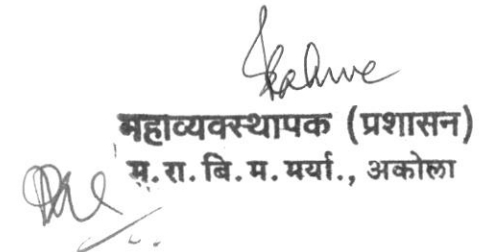 महाव्यवस्थापक (प्रशासन)
म.रा.बि.म.मर्या., अकोला